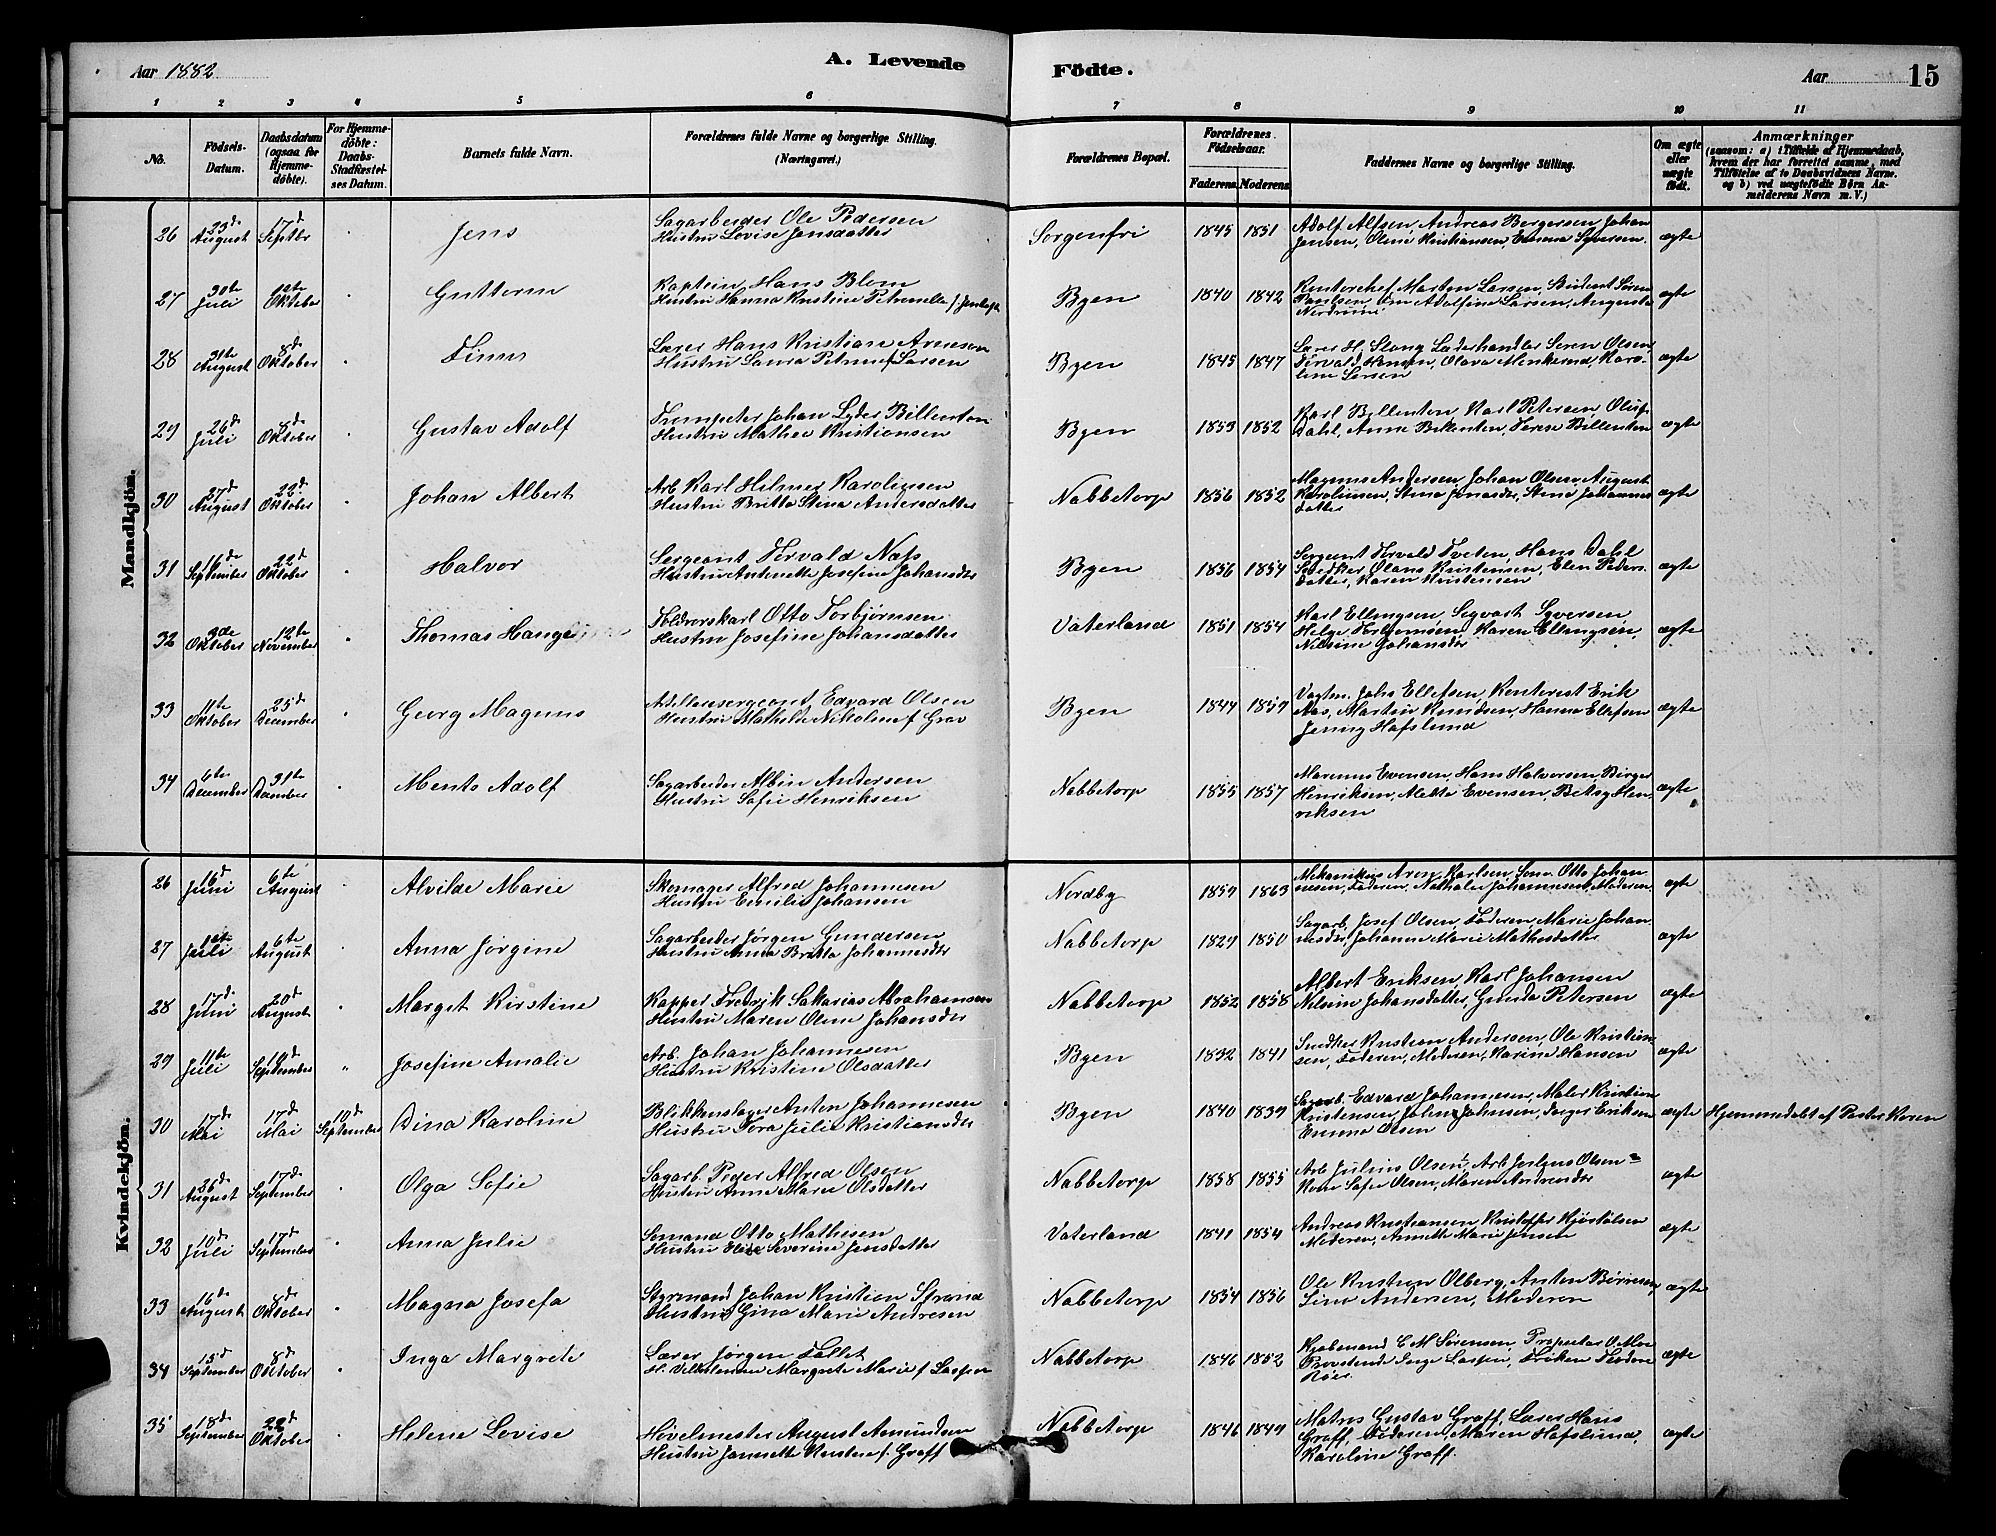 Aar 1882
A. Levende
Födte.
Aar
15
1 2 3 4 5 6 7 8 9 10 11
No.
Födsels-
Datum.
Daabsdatum
(ogsaa for
Hjemme-
döbte).
For Hjemme-
döbte:
Daabs-
Stadfæstel-
ses Datum.
Barnets fulde Navn.
Forældrenes fulde Navne og borgerlige Stilling.
(Næringsvei.)
Forældrenes Bopæl.
Forældrenes
Födselsaar.
Faderens Moderens
Faddernes Navne og borgerlige Stilling.
Om ægte
eller
uægte
födt.
Anmærkninger
(saasom: a) i Tilfælde af Hjemmedaab,
hvem der har forrettet samme, med
Tilföielse af to Daabsvidners Navne.
og b) ved uægtefödte Börn An-
melderens Navn m. V.)
Mandkjön.
26 23d August 17d Septbr Jens
Sagarbeider Ole Pedersen
Hustru Lovise Jensdatter
Sorgenfri 1845 1851
Adolf Alfsen, Andreas Borgersen, Johan
Jensen, Oline Kristiansen, Emma Syversen
ægte
27 30te Juli 12te Oktober Guttorm
Kaptein Hans Blom
Hustru Hanna Kristine Petronella f.
Byen 1840 1842
Kontorchef Morten Larsen,
Paulsen, Adolfine Larsen, Augusta
ægte
28 31te August 8d Oktober Finn
Lærer Hans Kristian Arnesen
Hustru Laura Petrine f Larsen
Byen 1845 1847
Lærer H. Stang Læderhandler Soren Olsen,
Torvald Hansen, Olava Minkerud, Karo-
line Larsen
ægte
29 26d Juli 8d Oktober Gustav Adolf
Trompeter Johan Lyder Billenton
Hustru Mathea Kristiansen
Byen 1853 1852
Karl Billenton, Karl Petersen, Oluf
Dahl, Anne Billenton, Terese Billenton
ægte
30 27d August 22d Oktober Johan Albert
Arb Karl Hilmer Karolinsen
Hustru Britta Stina Andersdatter
Nabbetorp 1856 1852
Magnus Andersen, Johan Olsen, August
Karolinsen, Stina Jonasdr, Stina Johannes
datter
ægte
31 16de September 22d Oktober Halvor
Sergeant Torvald Næss
Hustru Antonette Josefine Johansdtr
Byen 1856 1854
Sergeant Torvald Tveten, Hans Dahl
Snedker Olaus Kristensen, Elen Peders-
datter, Karen Kristensen
ægte
32 3de Oktober 12te November Thomas Hange
Toldrorskarl Otto Torbjørnsen
Hustru Josefine Johansdatter
Vaterland 1851 1854
Karl Ellingsen, Sigvart Syversen,
Helge Torbjornsen, Karen Ellingsen,
Nilsine Johansdtr
ægte
33 11te Oktober 25d December Georg Magnus
Artillerisergeant Edvard Olsen
Hustru Mathilde Nikoline f. Grav
Byen 1844 1857
Vagtm. Johs Ellefsen, Kontorist Erik
Aas, Martin Knudsen, Hanna Ellefsen
Jenny Hafslund
ægte
34 6te December 31te December Mento Adolf
Sagarbeider Albin Andersen
Hustru Sofie Henriksen
Nabbetorp 1855 1857
Marenus Evensen, Hans Halvorsen, Birger
Henriksen, Mette Evensen, Betsy Hen-
riksen
ægte
Kvindekjön.
26 16d Juni 6te August Alvilde Marie
Skomager Alfred Johannesen
Hustru Emilie Johansen
Nordby 1857 1863
Mekanikus Aron Karlsen, Otto Johan
nesen, Faderen, Nathalie Johannesen, Moderen
ægte
27 12te Juli 6te August Anna Jørgine
Sagarbeider Jørgen Gundersen
Hustru Anna Britta Johannesdtr
Nabbetorp 1827 1850
Sagarb. Josef Olsen, Faderen, Marie Johan
nesdtr, Johanne Marie Mathesdatter
ægte
28 17d Juni 20d August Margit Kirstine
Kapper Fredrik Sakarias Abrahamsen
Hustru Maren Oline Johansdtr
Nabbetorp 1852 1858
Albert Eriksen, Karl Johansen
Nilsine Johansdatter, Gunda Petersen
ægte
29 11te Juli 10d September " Josefine Amalie
Arb. Johan Johannesen
Hustru Kristine Olsdatter
Byen 1832 1841
Snedker Kristian Andersen, Ole Kristian-
sen, Faderen, Moderen, Karine Hansen
ægte
30 17d Mai 17d Mai 10d September Dina Karoline
Blikkenslager Anton Johannesen
Hustru Tora Julie Kristiansdtr
Byen 1840 1837
Sagarb. Edvard Johannesen, Maler Kristian
Kristensen, Johansen, Inger Eriksen
Emma Olsen
ægte Hjemmedøbt af Pastor Koren
31 26d August 17d September Olga Sofie
Sagarb. Peder Alfred Olsen
Hustru Anne Marie Olsdatter
Nabbetorp 1858 1855
Arb Julius Olsen, Arb Julius Olsens
Kone Sofie Olsen, Maren Andreasdtr
ægte
32 10d Juli 17d September Anna Julie
Sømand Otto Mathisen
Hustru Elise Severine Jensdatter
Vaterland 1841 1854
Andreas Kristiansen Kristoffer Kjøstolsen
Moderen, Annette Marie Jensen
ægte
33 16d August 8d Oktober Magna Josefa
Styrmand Johan Kristian Strand
Hustru Gina Marie Andresen
Nabbetorp 1854 1856
Ole Kristian Olberg, Anton Børresen,
Lina Andersen, Moderen
ægte
34 15d September 8d Oktober Inga Margrete
Lærer Jørgen Follet
H. Vilhelmine Margrete Marie f Lassen
Nabbetorp 1846 1852
Kjøbmand C M Sørensen, Proprietær
Inga Lassen, Frøken
ægte
35 18d September 22d Oktober Helene Lovise
Høvelmester August Amundsen
Hustru Jannette Kirstine f. Graff
Nabbetorp 1846 1847
Matros Gustav Graff, Lærer Hans
Graff, Faderen, Maren Hafslund,
Karoline Graff.
ægte